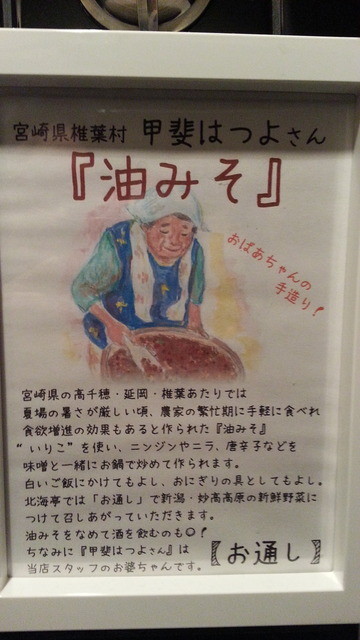 宮崎県椎葉村 甲斐はつよさん
『油みそ』
おばあちゃんの
手造り!
宮崎県の高千穂・延岡・椎葉あたりでは
夏場の暑さが厳しい頃、農家の繁忙期に手軽に食べれ
食欲増進の効果もあると作られた『油みそ』
“いりこ”を使い、ニンジンやニラ、唐辛子などを
味噌と一緒にお鍋で炒めて作られます。
白いご飯にかけてもよし、おにぎりの具としてもよし。
北海亭では「お通し」で新潟・妙高高原の新鮮野菜に
つけて召しあがっていただきます。
油みそをなめて酒を飲むのも◎!
ちなみに『甲斐はつよさん』は
当店スタッフのお婆ちゃんです。
【お通し】